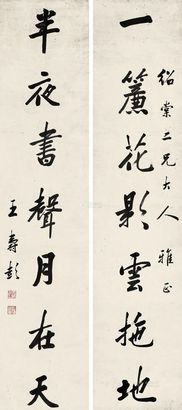 紹棠二兄大人 雅正
一簾花影雲拖地
半夜書聲月在天
王壽彭